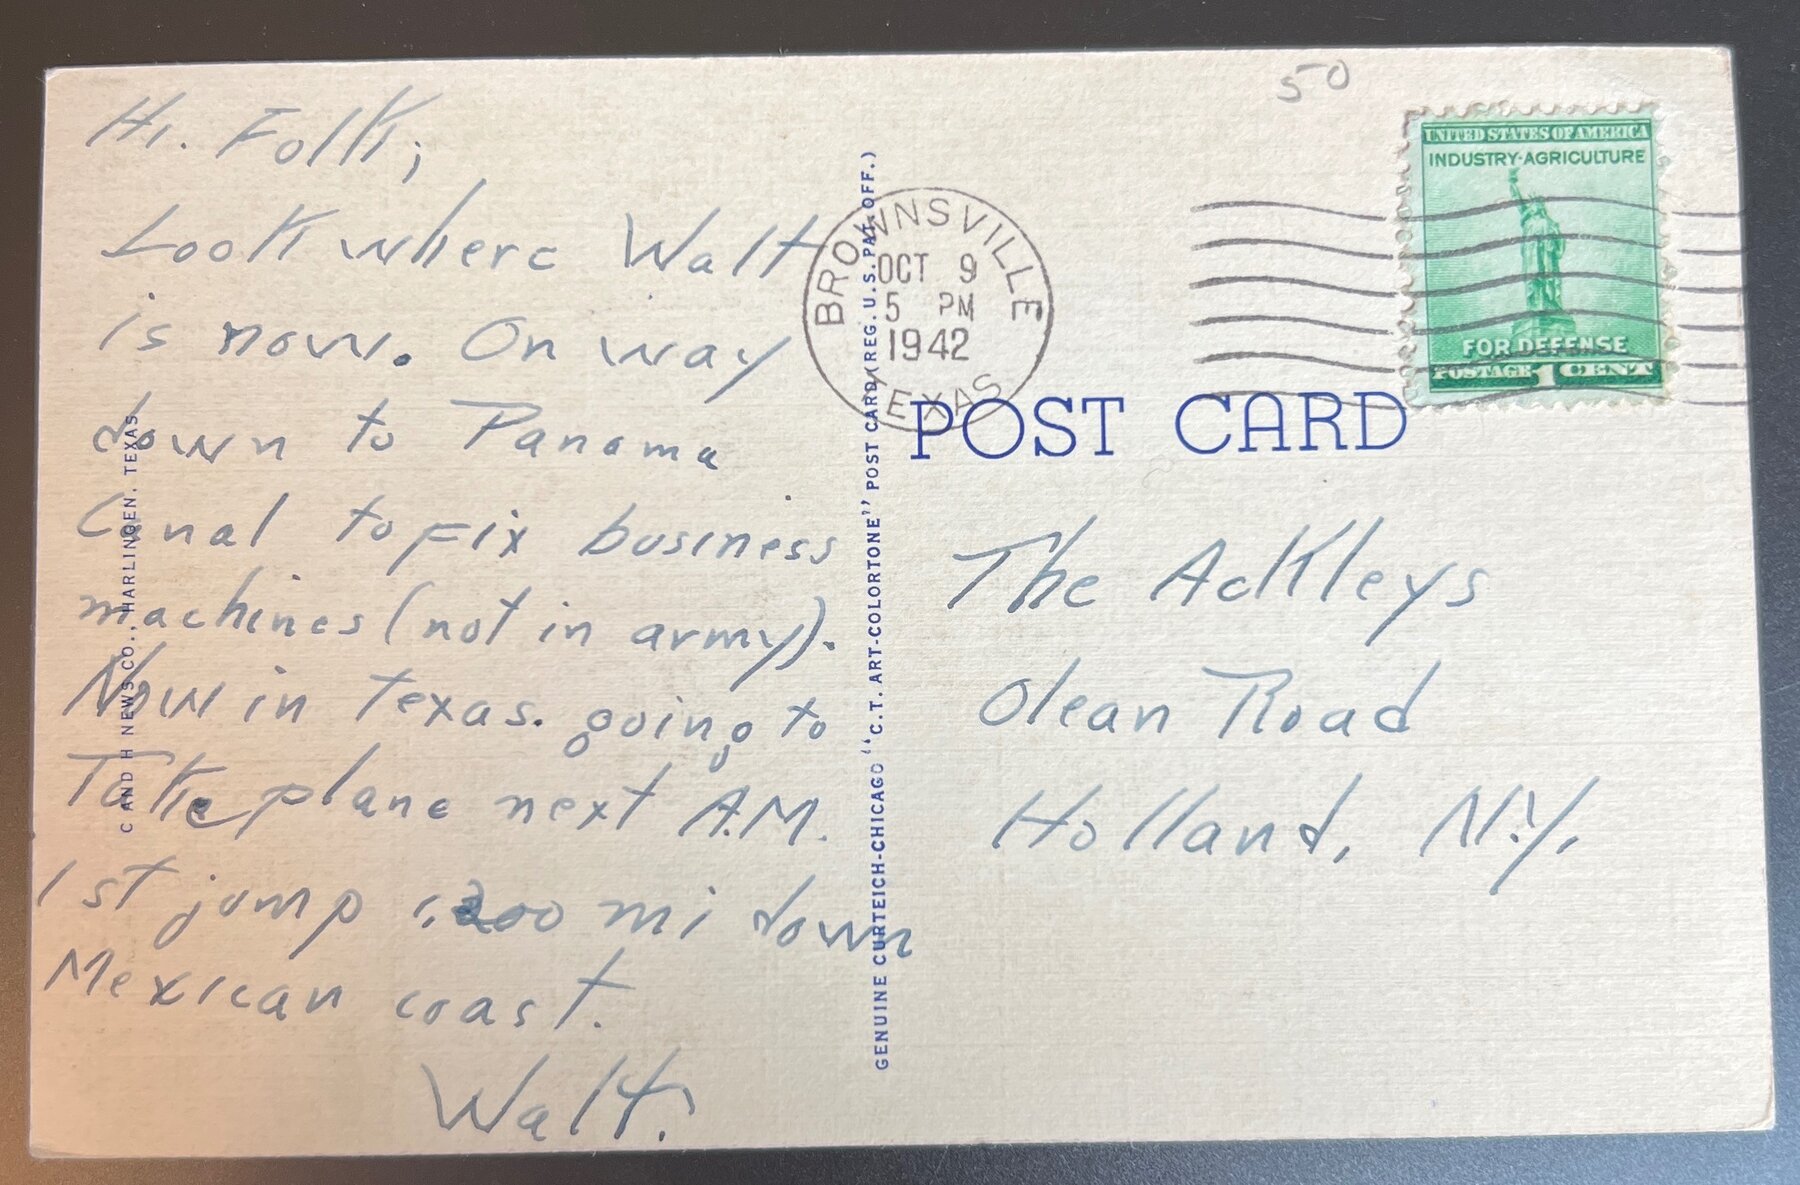 Hi. Folk;
Look where Walt
is now. On way
down to Panama
Canal to fix business
machines (not in army).
Now in Texas. going to
Take plane next A.M.
1st jump 1,200 mi down
Mexican coast.
Walt.
C AND H NEWS CO., HARLINGEN, TEXAS
GENUINE CURTEICH-CHICAGO "C.T. ART-COLORTONE" POST CARD (REG. U.S. PAT. OFF.)
BROWNSVILLE
OCT 9
5 PM
1942
TEXAS
50
UNITED STATES OF AMERICA
INDUSTRY·AGRICULTURE
FOR DEFENSE
POSTAGE 1 CENT
POST CARD
The Ackleys
Olean Road
Holland, N.Y.